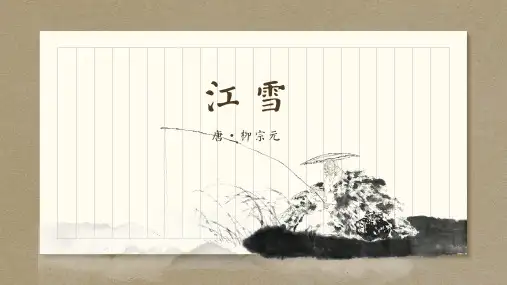 江雪
唐·柳宗元